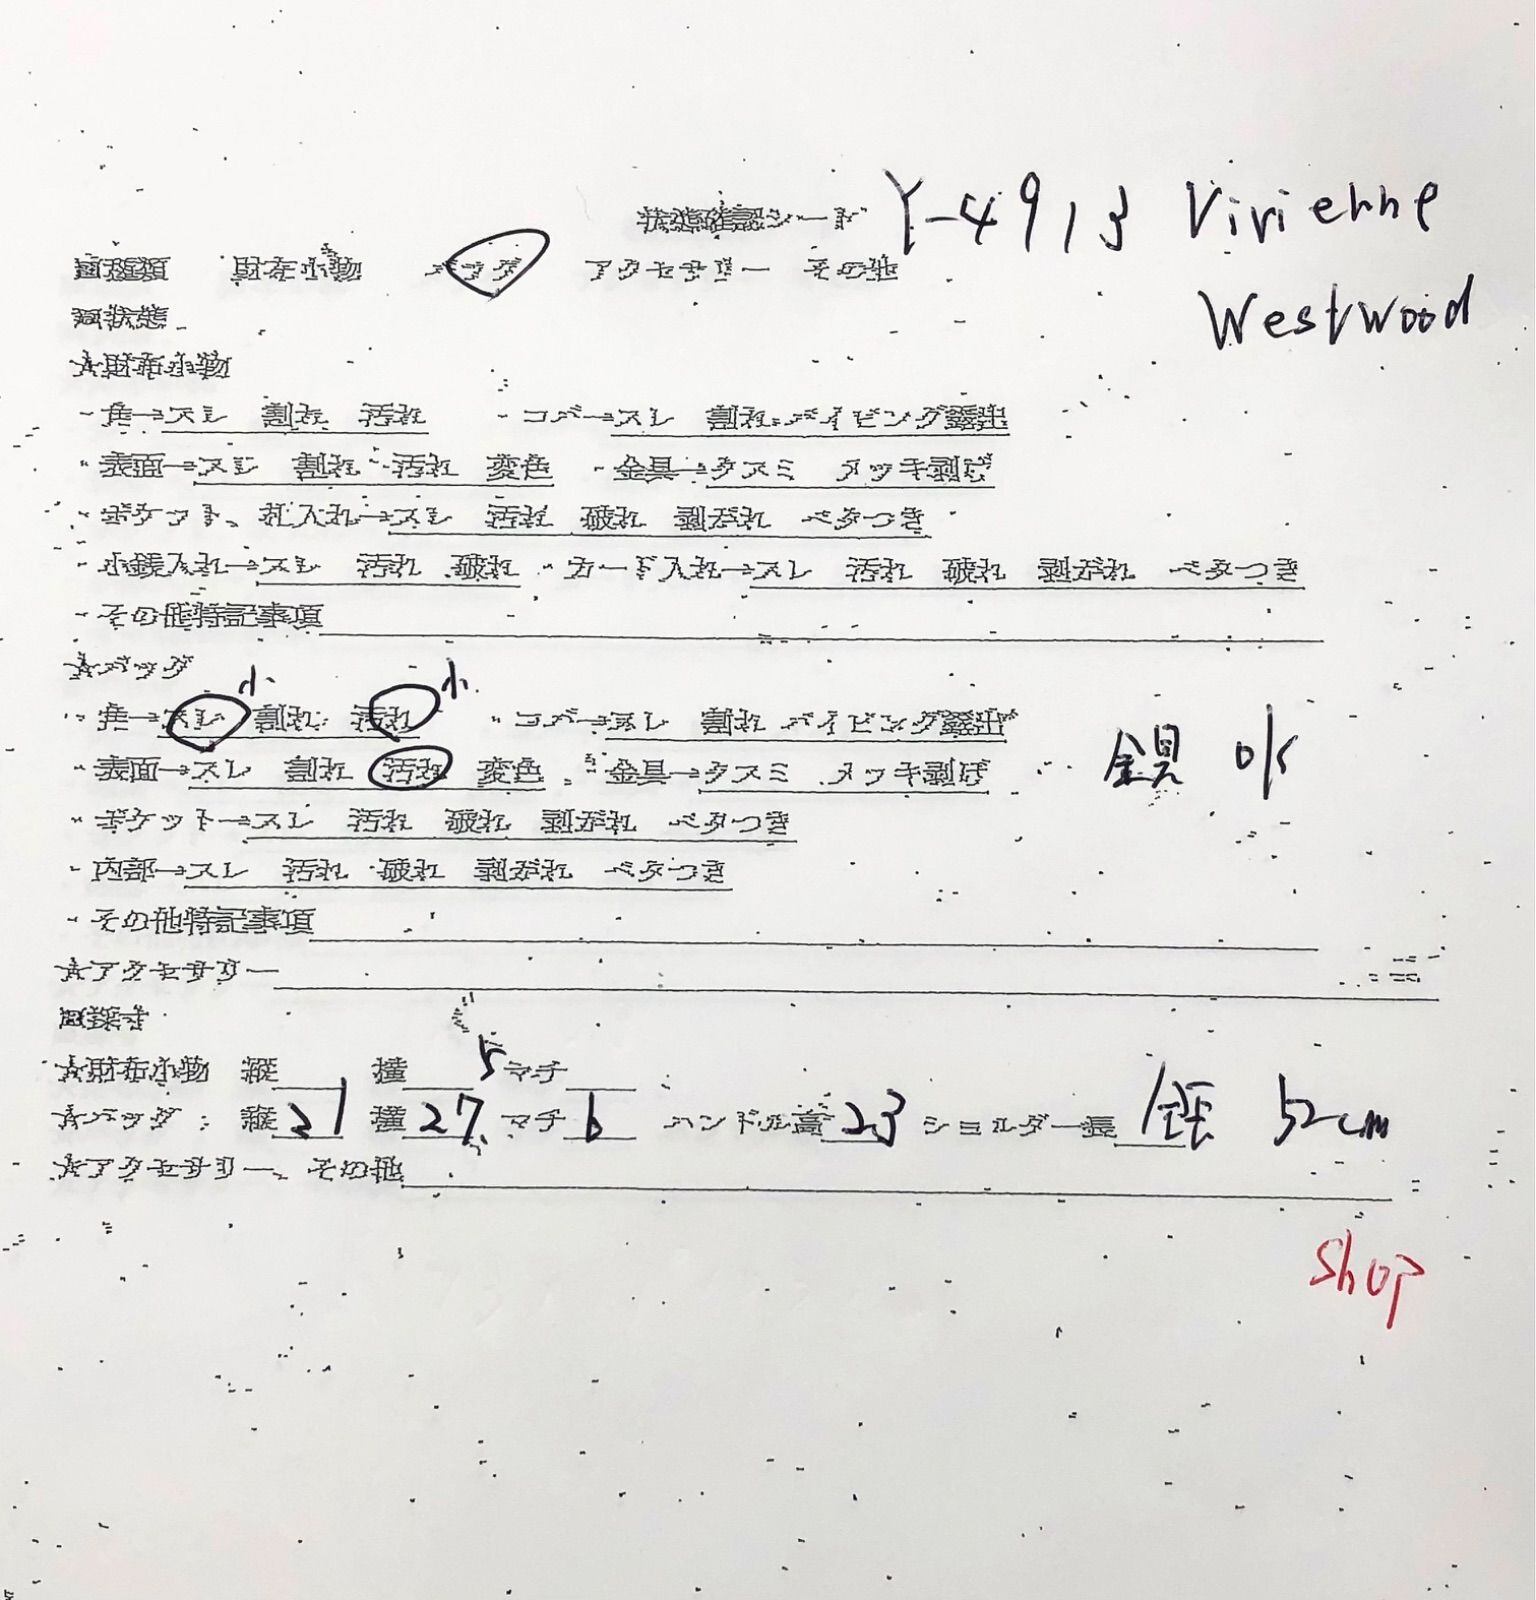 状態確認シート Y-4913 Vivienne
Westwood
種類 財布小物 バッグ アクセサリー その他
状態
☆財布小物
・角→スレ 割れ 汚れ ・コバ→スレ 割れ パイピング露出
・表面→スレ 割れ 汚れ 変色 ・金具→クスミ メッキ剥げ
・ポケット、札入れ→スレ 汚れ 破れ 剥がれ ベタつき
・小銭入れ→スレ 汚れ 破れ ・カード入れ→スレ 汚れ 破れ 剥がれ ベタつき
・その他特記事項
☆バッグ
・角→スレ 小 割れ 汚れ 小 ・コバ→スレ 割れ パイピング露出
・表面→スレ 割れ 汚れ 変色 ・金具→クスミ メッキ剥げ 金具 ok
・ポケット→スレ 汚れ 破れ 剥がれ ベタつき
・内部→スレ 汚れ 破れ 剥がれ ベタつき
・その他特記事項
☆アクセサリー
採寸
☆財布小物 縦 横 マチ
☆バッグ: 縦 21 横 27.5 マチ 6 ハンドル高 23 ショルダー長 全長 52cm
☆アクセサリー、その他
Shop